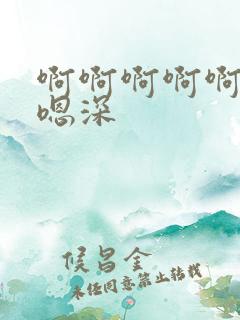 啊啊啊啊啊
嗯深
候昌金
未经同意禁止转载